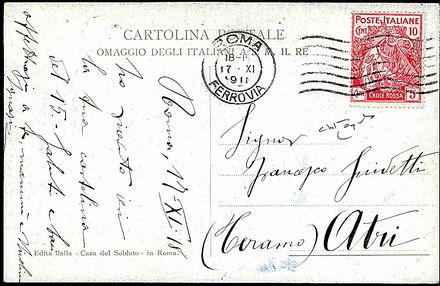 CARTOLINA POSTALE
OMAGGIO DEGLI ITALIANI A S. M. IL RE
ROMA
18-19
17·XI
1918
FERROVIA
POSTE ITALIANE
CENT 10
CROCE ROSSA
5
Roma, 17-XI-18
Ho ricevuto ieri
la tua cartolina
del 15. Saluti
Signor
Francesco
(Teramo) Atri
Edita dalla «Casa del Soldato» in Roma.